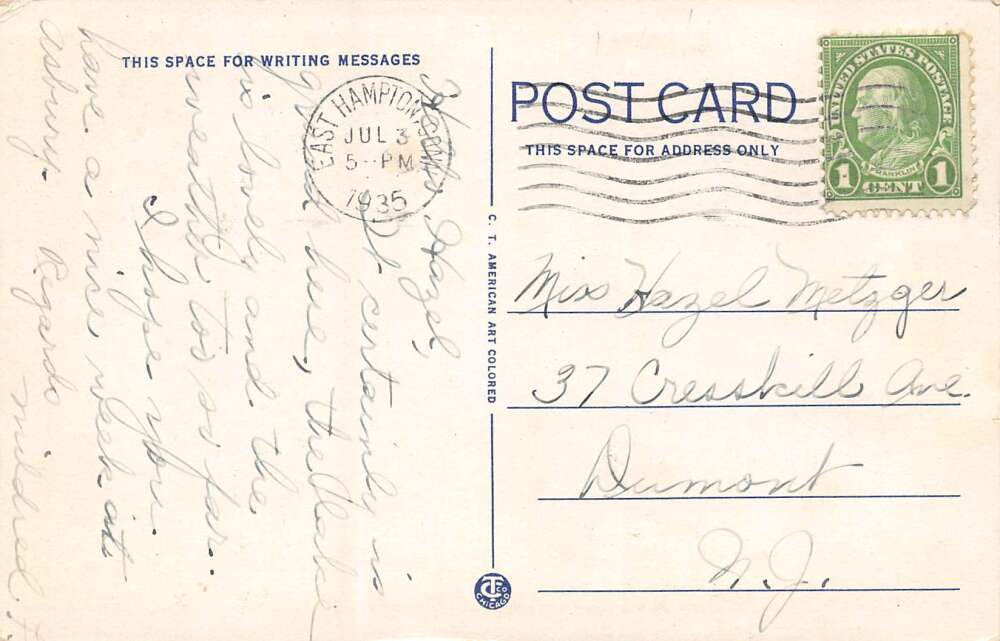 THIS SPACE FOR WRITING MESSAGES
Hazel,
It certainly is
grand here, the lake
is lovely and the
weather too so far.
I hope you
have a nice week at
asbury. Regards
mildred.
EAST HAMPTON CONN.
JUL 3
5 - PM
1935
C. T. AMERICAN ART COLORED
CT CO
CHICAGO
POST CARD
THIS SPACE FOR ADDRESS ONLY
UNITED STATES POSTAGE
FRANKLIN
1 CENT 1
Miss Hazel Metzger
37 Cresskill Ave.
Dumont
N.J.